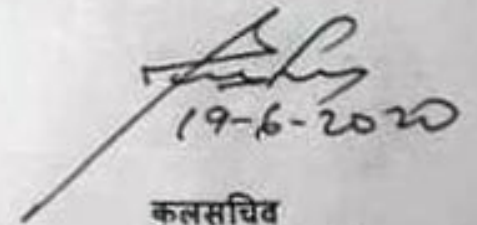 19-6-2020
कलसचिव